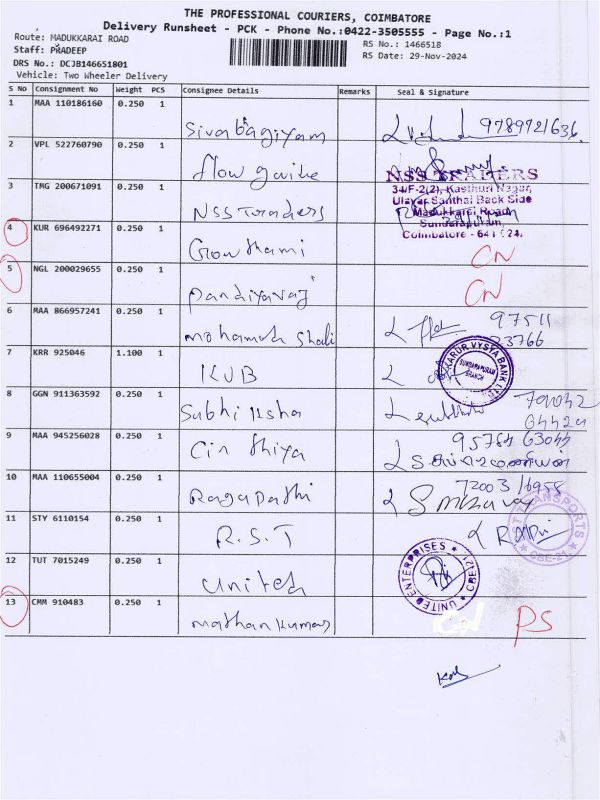 THE PROFESSIONAL COURIERS, COIMBATORE
Delivery Runsheet - PCK - Phone No.:0422-3505555 - Page No.:1
Route: MADUKKARAI ROAD
RS No.: 1466518
Staff: PRADEEP
RS Date: 29-Nov-2024
DRS No.: DCJB146651801
Vehicle: Two Wheeler Delivery
S No Consignment No Weight PCS Consignee Details Remarks Seal & Signature
1 MAA 110186160 0.250 1
Sivabagiyam 9789721636.
2 VPL 522760790 0.250 1
flow
NSS TRADERS
3 TMG 200671091 0.250 1
34/F-2(2), Kasthuri Nagar,
Ulavar Santhai Back Side
NSS Traders
Madukkarai Road
Sundarapuram,
4 KUR 696492271 0.250 1
Coimbatore - 641 024.
Gowthami CN
5 NGL 200029655 0.250 1
Pandiyaraj CN
6 MAA 866957241 0.250 1
Mohamed 97511
23766
7 KRR 925046 1.100 1
KARUR VYSYA BANK LTD
SUNDARAPURAM
BRANCH
KVB
8 GGN 911363592 0.250 1
Subhiksha
9 MAA 945256028 0.250 1
Cinthiya 95784 63044
10 MAA 110655004 0.250 1
Ragapathi 72003
11 STY 6110154 0.250 1
R.S.T
ST TRANSPORTS
CBE-21
12 TUT 7015249 0.250 1
United
UNITED ENTERPRISES
CBE-21
13 CMM 910483 0.250 1
Mathan kumar CN PS